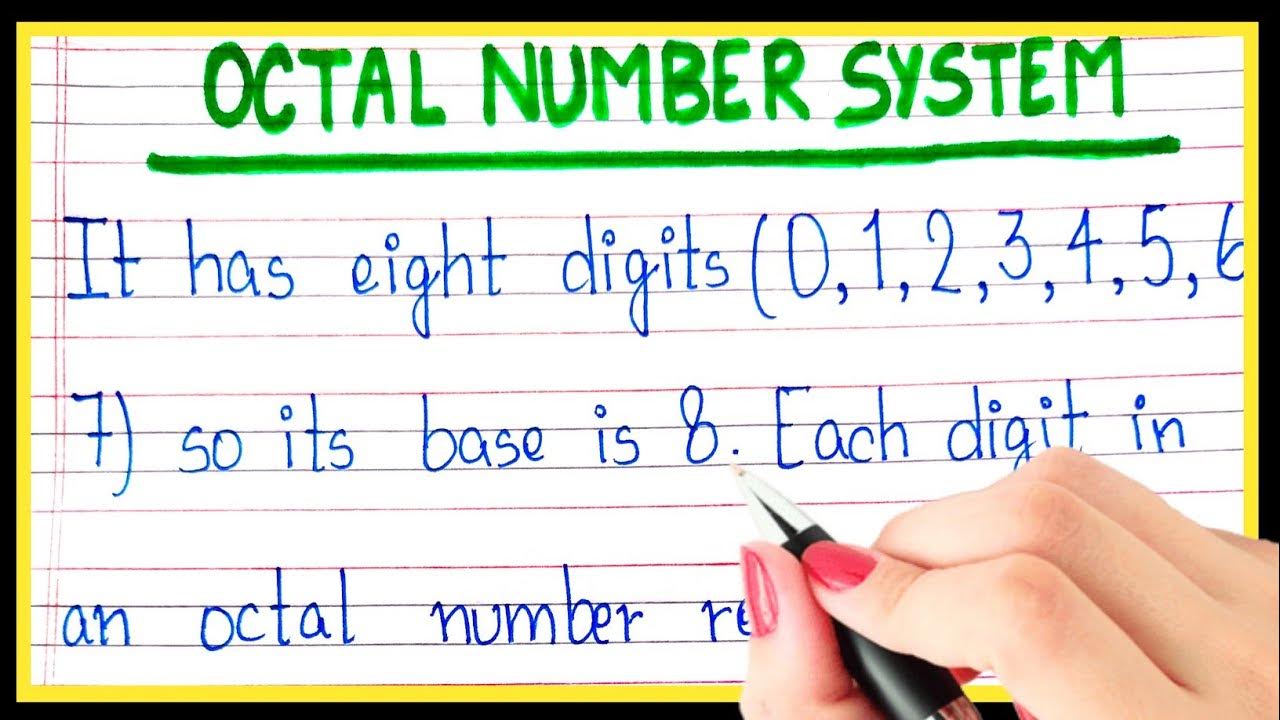 OCTAL NUMBER SYSTEM
It has eight digits (0,1,2,3,4,5,6
7) so its base is 8. Each digit in
an octal number